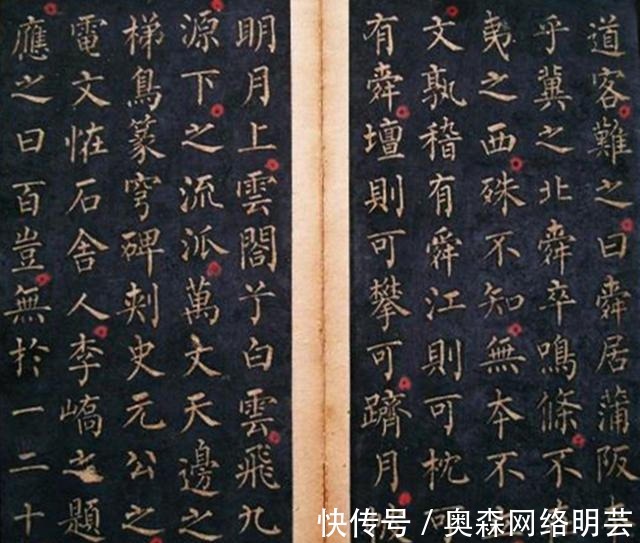 道客難之曰舜居蒲阪
乎冀之北舜卒鳴條不
夷之西殊不知無本不
文孰稽有舜江則可枕
有舜壇則可攀可躋月
明月上雲閣兮白雲飛九
源下之流派萬丈天邊之
梯鳥篆穹碑刺史元公之
電文恠石舍人李嶠之題
應之曰百豈無於一二十
快传号 / 奥森网络明芸